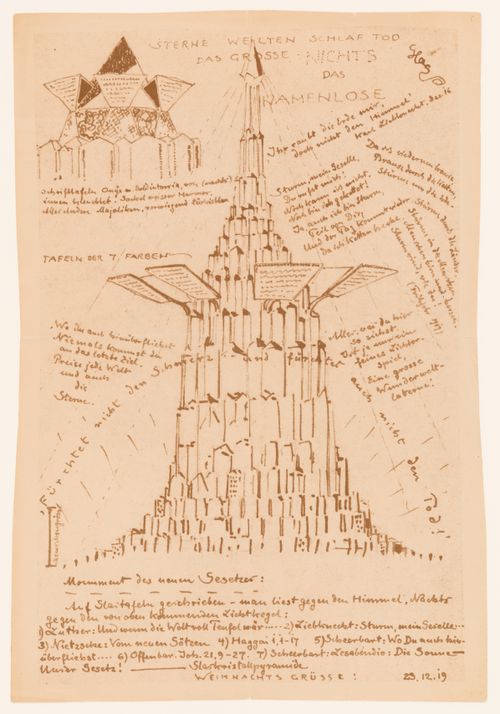 STERNE WELTEN SCHLAF TOD
DAS GROSSE - NICHTS
DAS
NAMENLOSE
Ihr raubt die Erde mir,
doch nicht den Himmel!
Karl Liebknecht. Dez. 16
Sturm, mein Geselle,
Du rufst mich!
Noch kann ich nicht,
Noch bin ich gekettet!
Ja, auch ich bin Sturm,
Teil von Dir;
Und der Tag kommt wieder,
Da ich Ketten breche,
Da ich wiederum brause,
Brause durch die Weiten,
Stürme um die Erde,
Stürme durch die Länder,
Stürme in die Menschen,
TAFELN DER 7 FARBEN
Wo Du auch hinüberfliehst
Niemals kommst du
an das letzte Ziel.
Preise jede Welt
und auch
die
Sterne.
Alles, was du hier
so siehst
Ist ja nur ein
feines Lichter
spiel,
Eine grosse
Wunderwelt-
laterne!
Fürchtet nicht den Schmerz - und fürchtet auch nicht den Tod!
Monument des neuen Gesetzes:
Auf Glastafeln geschrieben - man liest gegen den Himmel, Nachts
gegen den von oben kommenden Lichtkegel:
1) Luther: Und wenn die Welt voll Teufel wär .... 2) Liebknecht: Sturm, mein Geselle ...
3) Nietzsche: Vom neuen Götzen 4) Haggai 1,1-17 5) Scheerbart: Wo Du auch hin-
überfliehst .... 6) Offenbar. Joh. 21, 9-27. 7) Scheerbart: Lesabéndio: Die Sonne
Unser Gesetz! Glaskristallpyramide
WEIHNACHTS GRÜSSE!
23.12.19